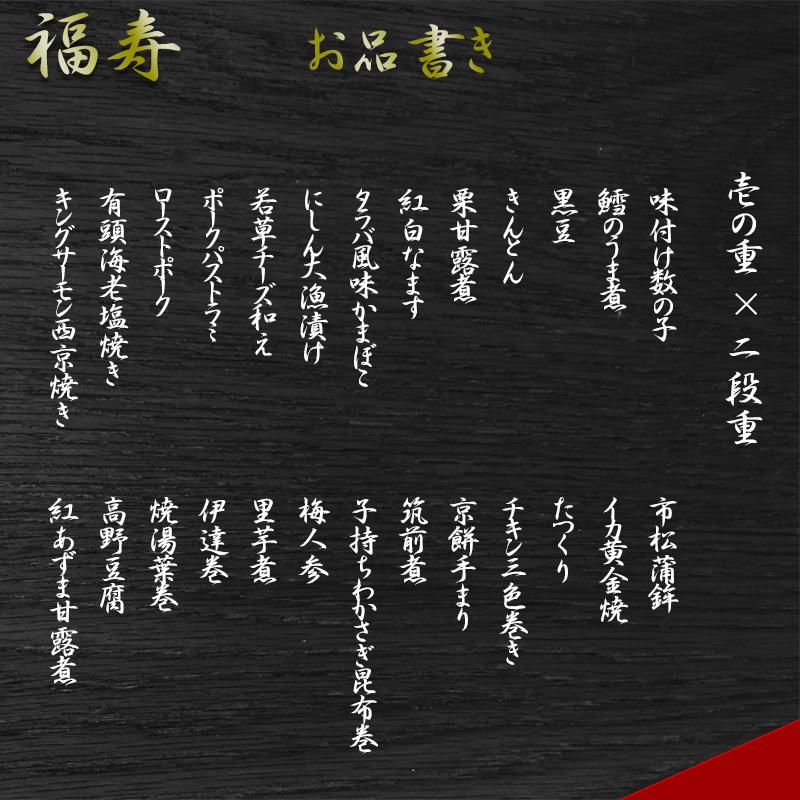 福寿
お品書き
壱の重 × 二段重
味付け数の子
鱈のうま煮
黒豆
きんとん
栗甘露煮
紅白なます
タラバ風味かまぼこ
にしん大漁漬け
若草チーズ和え
ポークパストラミ
ローストポーク
有頭海老塩焼き
キングサーモン西京焼き
市松蒲鉾
イカ黄金焼
たつくり
チキン三色巻き
京餅手まり
筑前煮
子持ちわかさぎ昆布巻
梅人参
里芋煮
伊達巻
焼湯葉巻
高野豆腐
紅あずま甘露煮